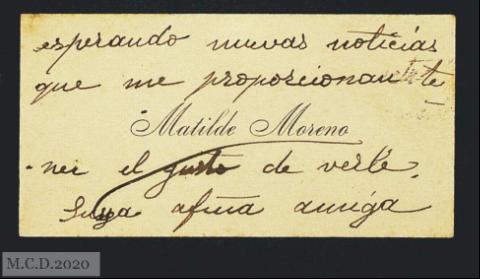 esperando nuevas noticias
que me proporcionan te
Matilde Moreno
-ner el gusto de verle.
Suya afma amiga
M.C.D.2020